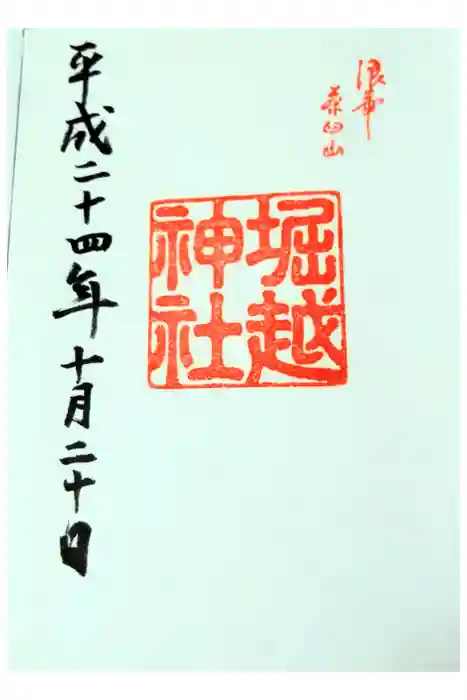 浪華
茶臼山
堀越
神社
平成二十四年十月二十日